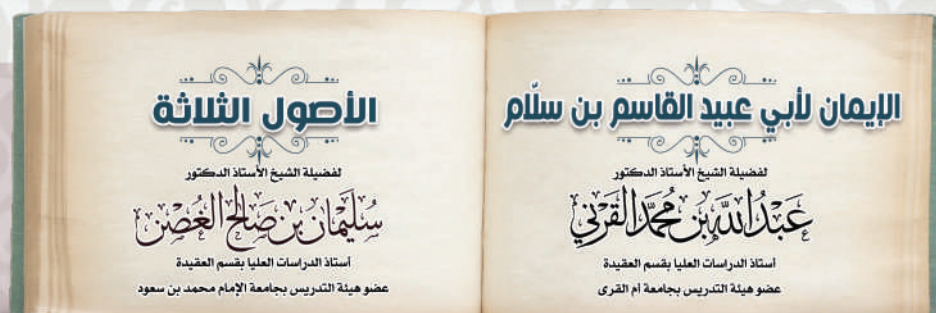 الإيمان لأبي عبيد القاسم بن سلّام
لفضيلة الشيخ الأستاذ الدكتور
عَبْدُ اللَّهِ بْنُ مُحَمَّد القَرْنِي
أستاذ الدراسات العليا بقسم العقيدة
عضو هيئة التدريس بجامعة أم القرى
الأصول الثلاثة
لفضيلة الشيخ الأستاذ الدكتور
سُلَيْمَان بْن صَالِح الغُصْن
أستاذ الدراسات العليا بقسم العقيدة
عضو هيئة التدريس بجامعة الإمام محمد بن سعود